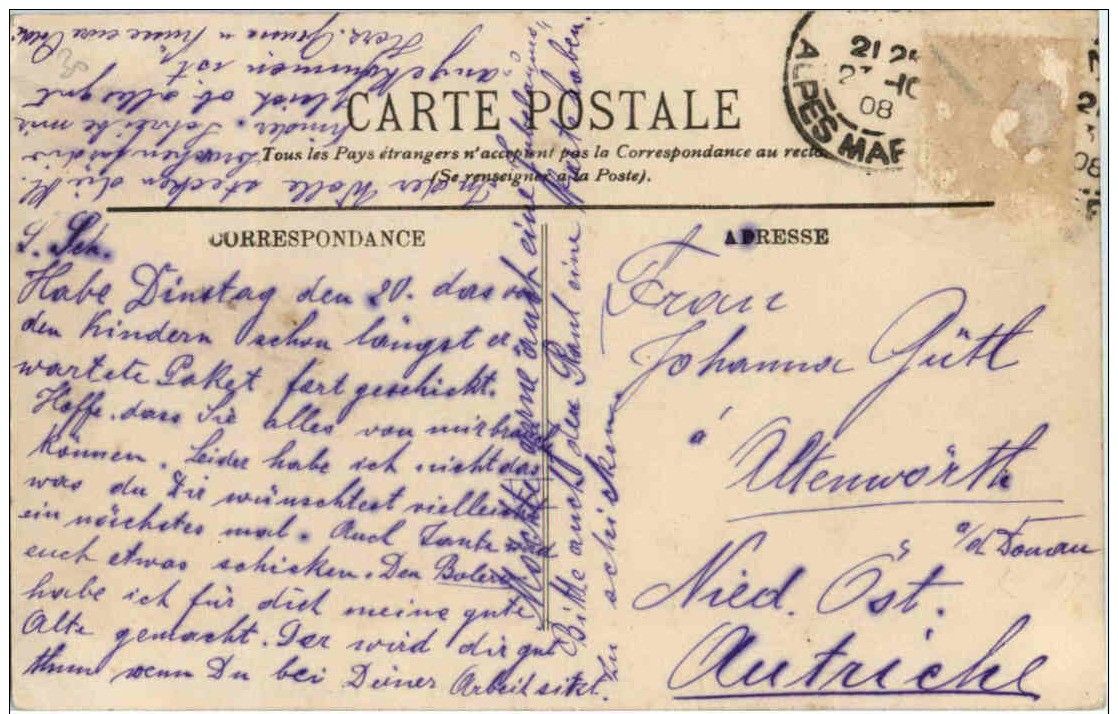 CARTE POSTALE
Tous les Pays étrangers n'acceptent pas la Correspondance au recto
(Se renseigner à la Poste).
CORRESPONDANCE
L. Sch.
Habe Dinstag den 20. das von
den Kindern schon längst er
wartete Paket fort geschickt.
Hoffe dass Sie alles von mir brauch
können. Leider habe ich nicht das
was du Dir wünschtest vielleicht
ein nächstes mal. Auch Tante wird
euch etwas schicken. Den Bolero
habe ich für dich meine gute
Alte gemacht. Der wird dir gut
thun wenn Du bei Deiner Arbeit sitzt.
Möchte gerne auch eine
Bitte auch den Paul eine freut haben.
zu schicken
In der Wolle stecken die
Kinder. Schreibe mir
gleich ob alles gut
angekommen ist.
Herz. Grüsse u Küsse eure
ADRESSE
Frau
Johanna Gütl
á
Altenwörth
a/d Donau
Nied. Öst.
Autriche
ALPES MAR
21 25
-10
08